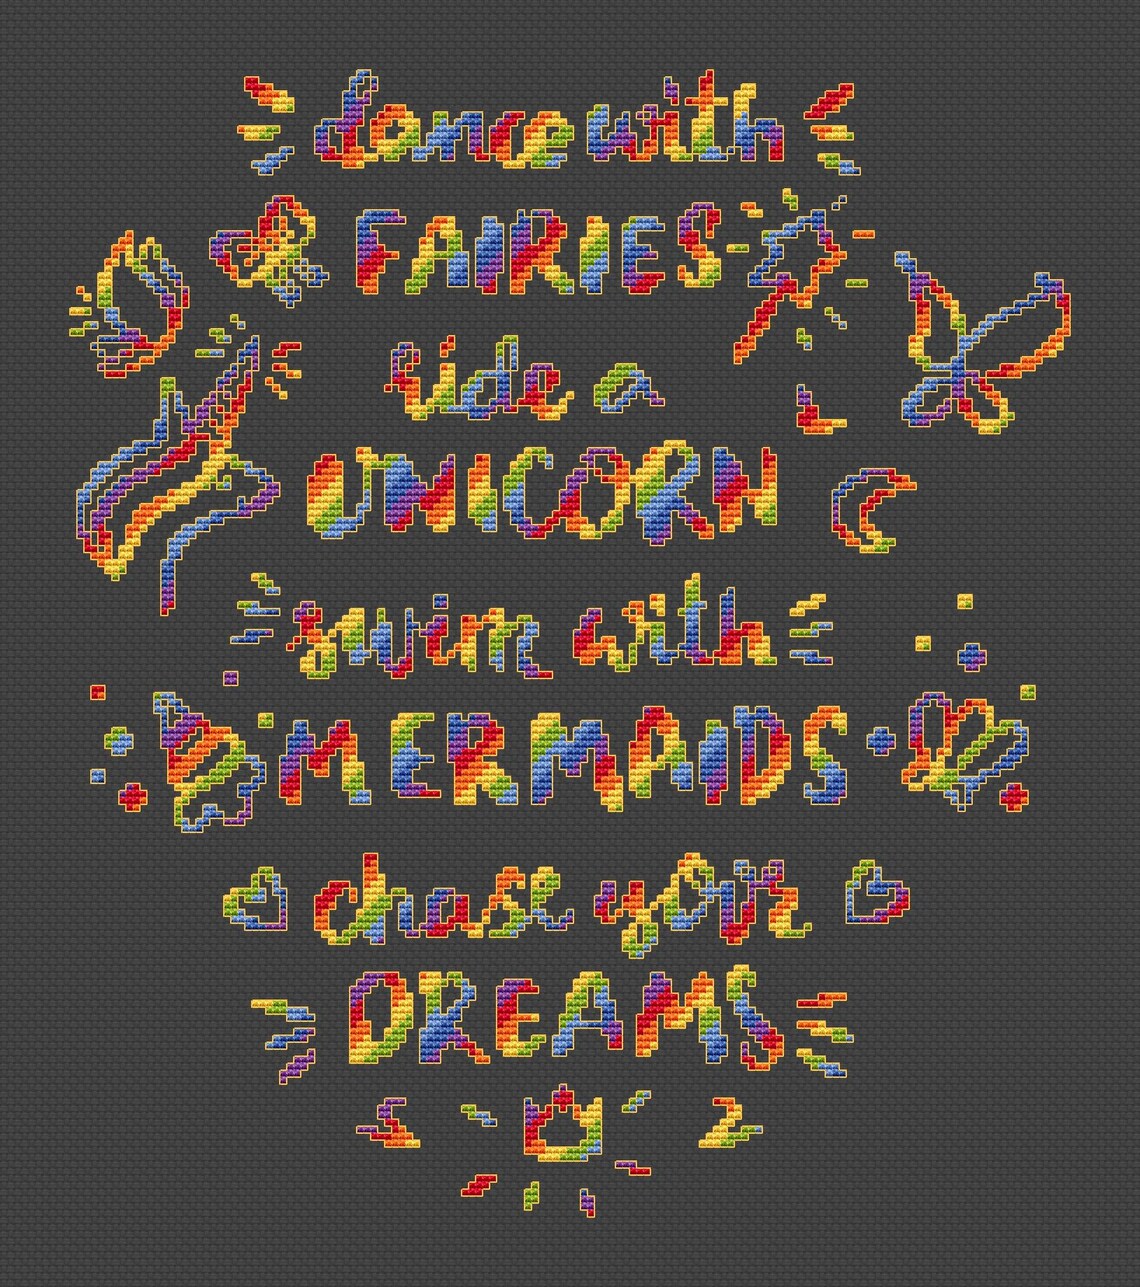 dance with
FAIRIES
ride a
UNICORN
swim with
MERMAIDS
chase your
DREAMS